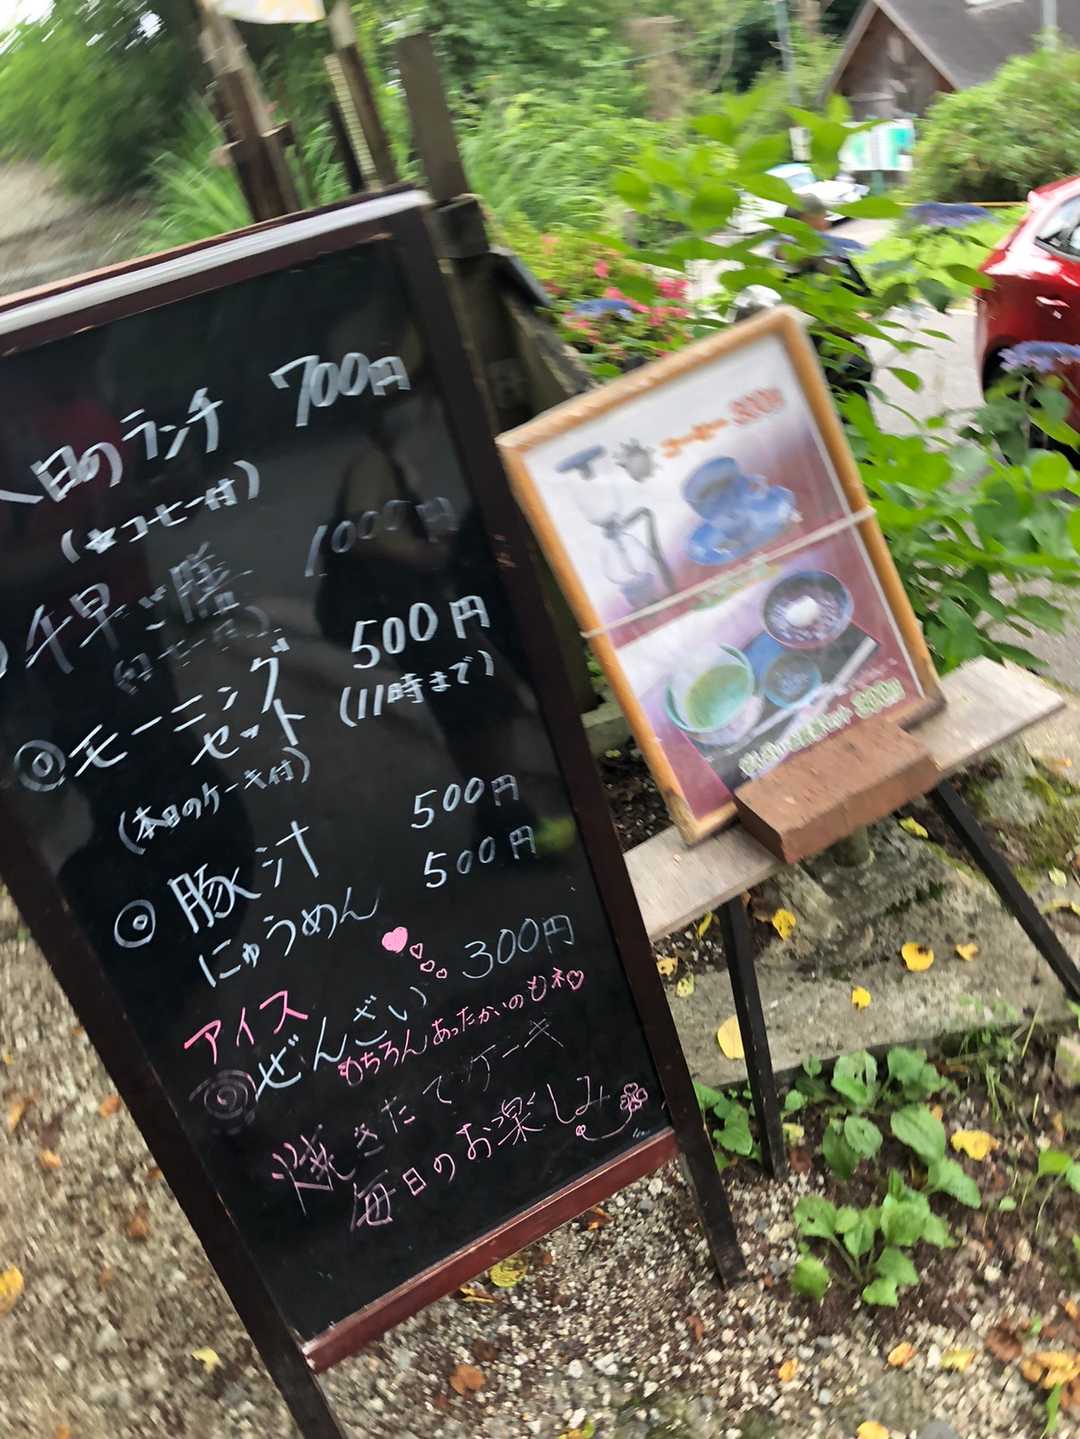 日のランチ 700円
(コーヒー付)
千早ご膳 1000円
◎モーニング 500円
セット (11時まで)
(本日のケーキ付)
◎豚汁 500円
にゅうめん 500円
アイス
◎ぜんざい 300円
もちろんあったかいのもネ
焼きたてケーキ
毎日のお楽しみ
コーヒー 300円